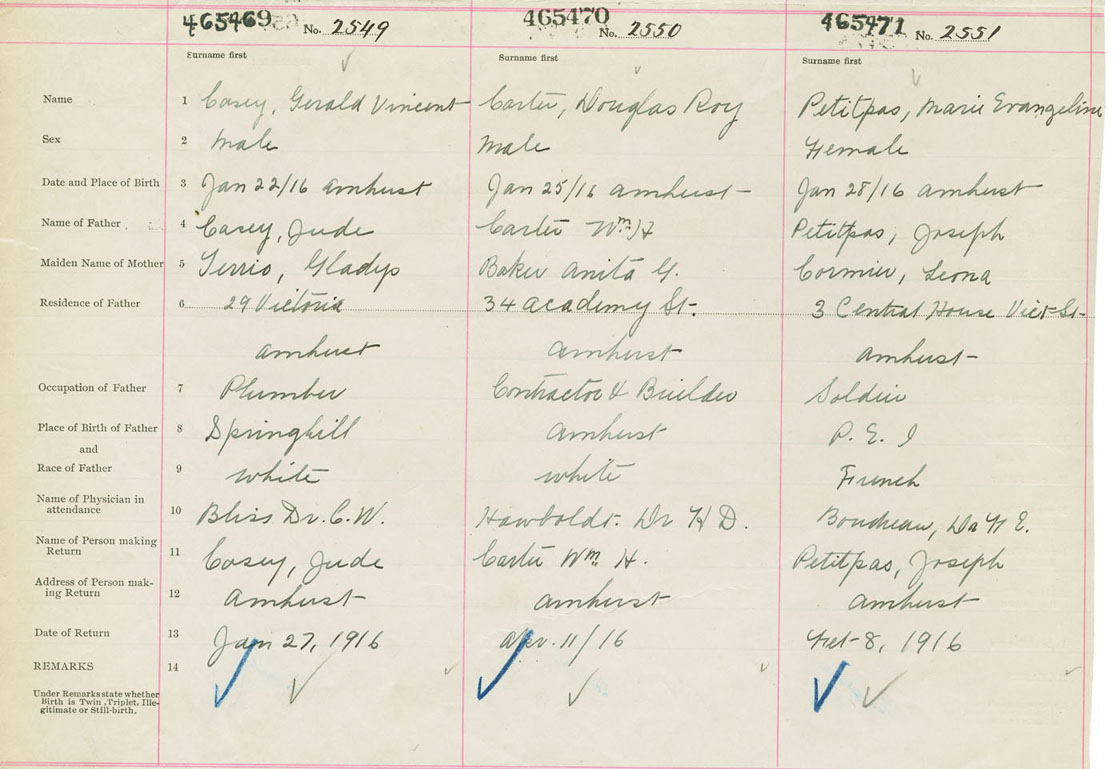 465469 No. 2549 465470 No. 2550 465471 No. 2551
Surname first Surname first Surname first
Name 1 Casey, Gerald Vincent Carter, Douglas Roy Petitpas, Marie Evangeline
Sex 2 Male Male Female
Date and Place of Birth 3 Jan 22/16 Amherst Jan 25/16 Amherst Jan 28/16 Amherst
Name of Father 4 Casey, Jude Carter Wm H Petitpas, Joseph
Maiden Name of Mother 5 Terrio, Gladys Baker Anita G. Cormier, Leona
Residence of Father 6 29 Victoria 34 Academy St. 3 Central House Vict St
Amherst Amherst Amherst
Occupation of Father 7 Plumber Contractor & Builder Soldier
Place of Birth of Father 8 Springhill Amherst P. E. I
and
Race of Father 9 White White French
Name of Physician in
attendance 10 Bliss Dr. C. W. Hawboldt. Dr H D. Boudreau, Dr F E.
Name of Person making
Return 11 Casey, Jude Carter Wm. H. Petitpas, Joseph
Address of Person mak-
ing Return 12 Amherst Amherst Amherst
Date of Return 13 Jan 27, 1916 Apr. 11/16 Feb 8, 1916
REMARKS 14
Under Remarks state whether
Birth is Twin, Triplet, Ille-
gitimate or Still-birth.